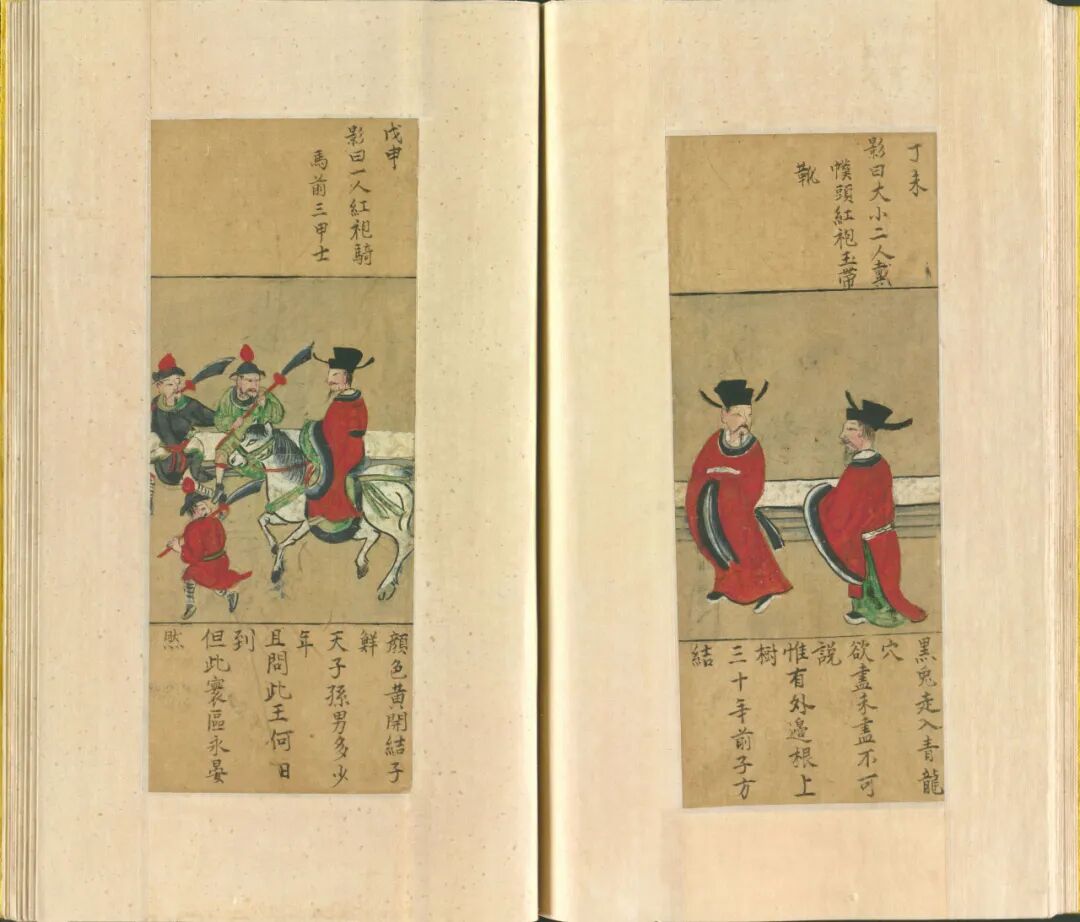 丁未
影曰大小二人戴
幞頭紅袍玉帶
靴
黑兎走入青龍
穴
欲盡未盡不可
說
惟有外邉根上
樹
三十年前子方
結
戊申
影曰一人紅袍騎
馬前三甲士
顏色黄開結子
鮮
天子孫男多少
年
且問此王何日
到
但此寰區永晏
然